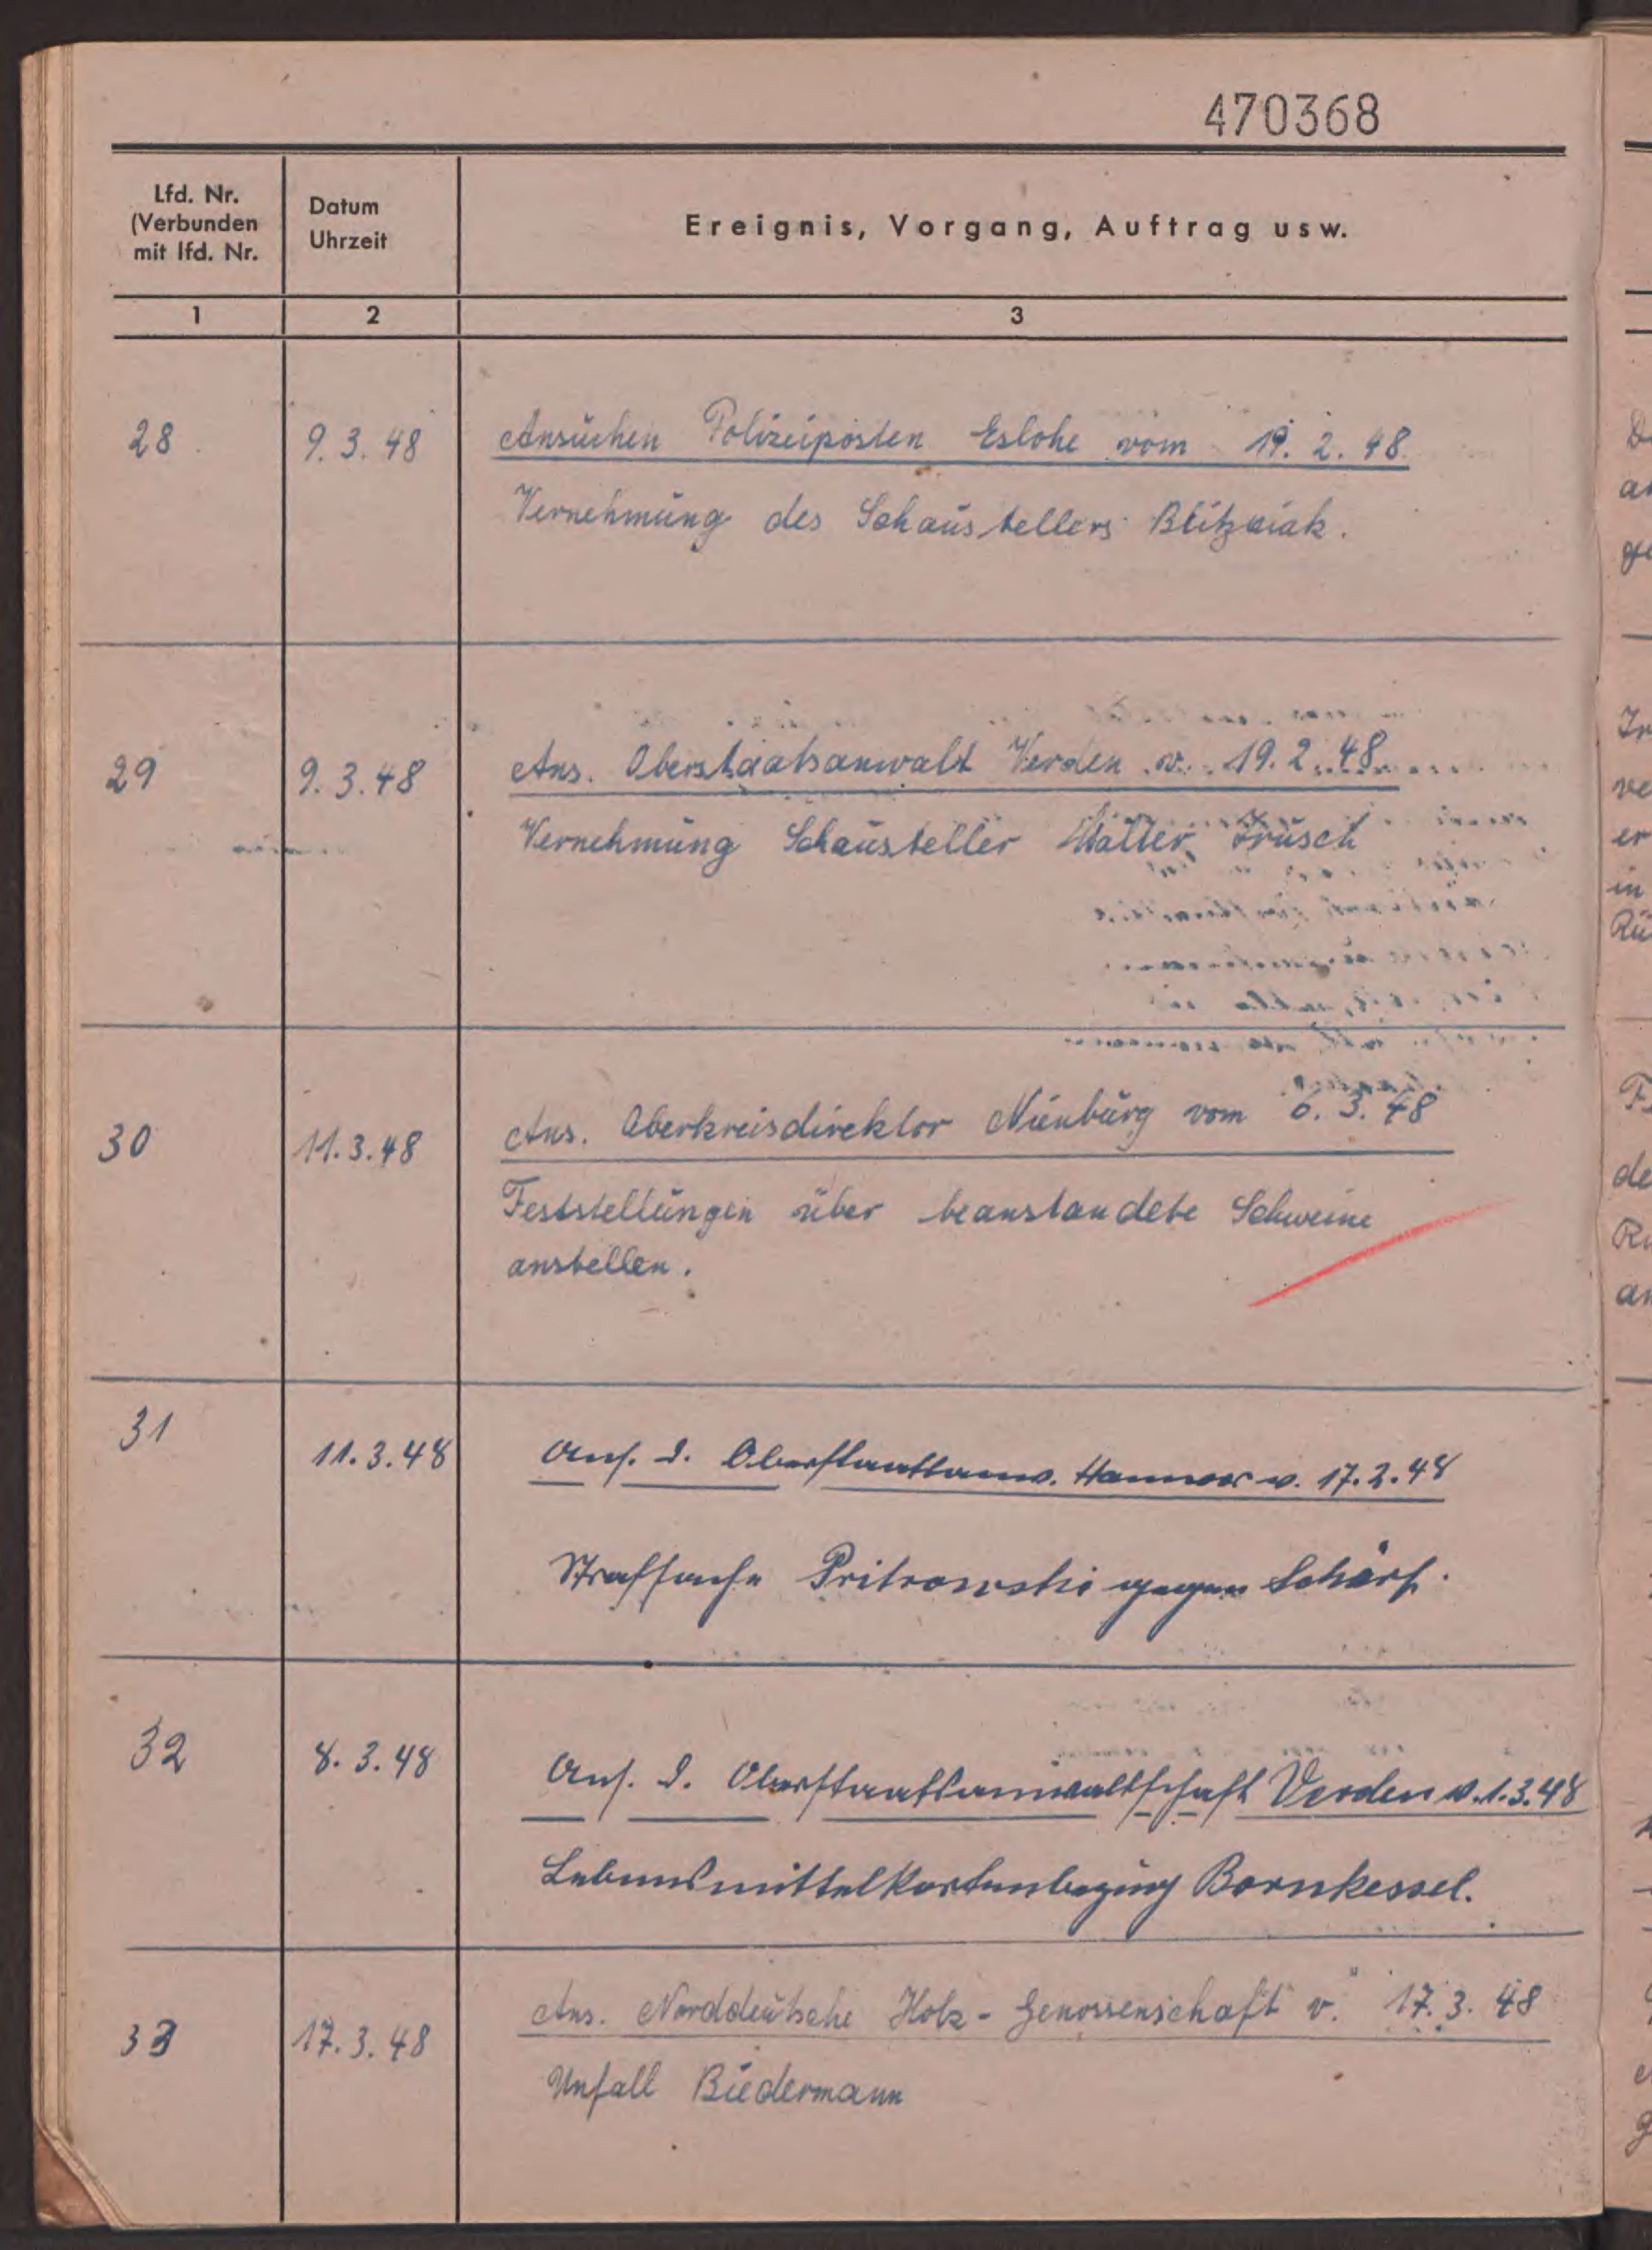 470368
Lfd. Nr.
(Verbunden
mit lfd. Nr.
Datum
Uhrzeit
Ereignis, Vorgang, Auftrag usw.
1 2 3
28 9.3.48 Ansuchen Polizeiposten Eslohe vom 19.2.48
Vernehmung des Schaustellers
29 9.3.48 Ans. Oberstaatsanwalt Verden v. 19.2.48
Vernehmung Schausteller Walter
30 11.3.48 Ans. Oberkreisdirektor Nienburg vom 6.3.48
Feststellungen über beanstandete Schweine
anstellen.
31 11.3.48 Ans. d. Oberstaatsanw. Hannover v. 17.2.48
Strafsache Pritrowski gegen Schärf.
32 8.3.48 Ans. d. Oberstaatsanwaltschaft Verden v. 1.3.48
Lebensmittelkartenbezug Bornkessel.
33 17.3.48 Ans. Norddeutsche Holz-Genossenschaft v. 17.3.48
Unfall Biedermann